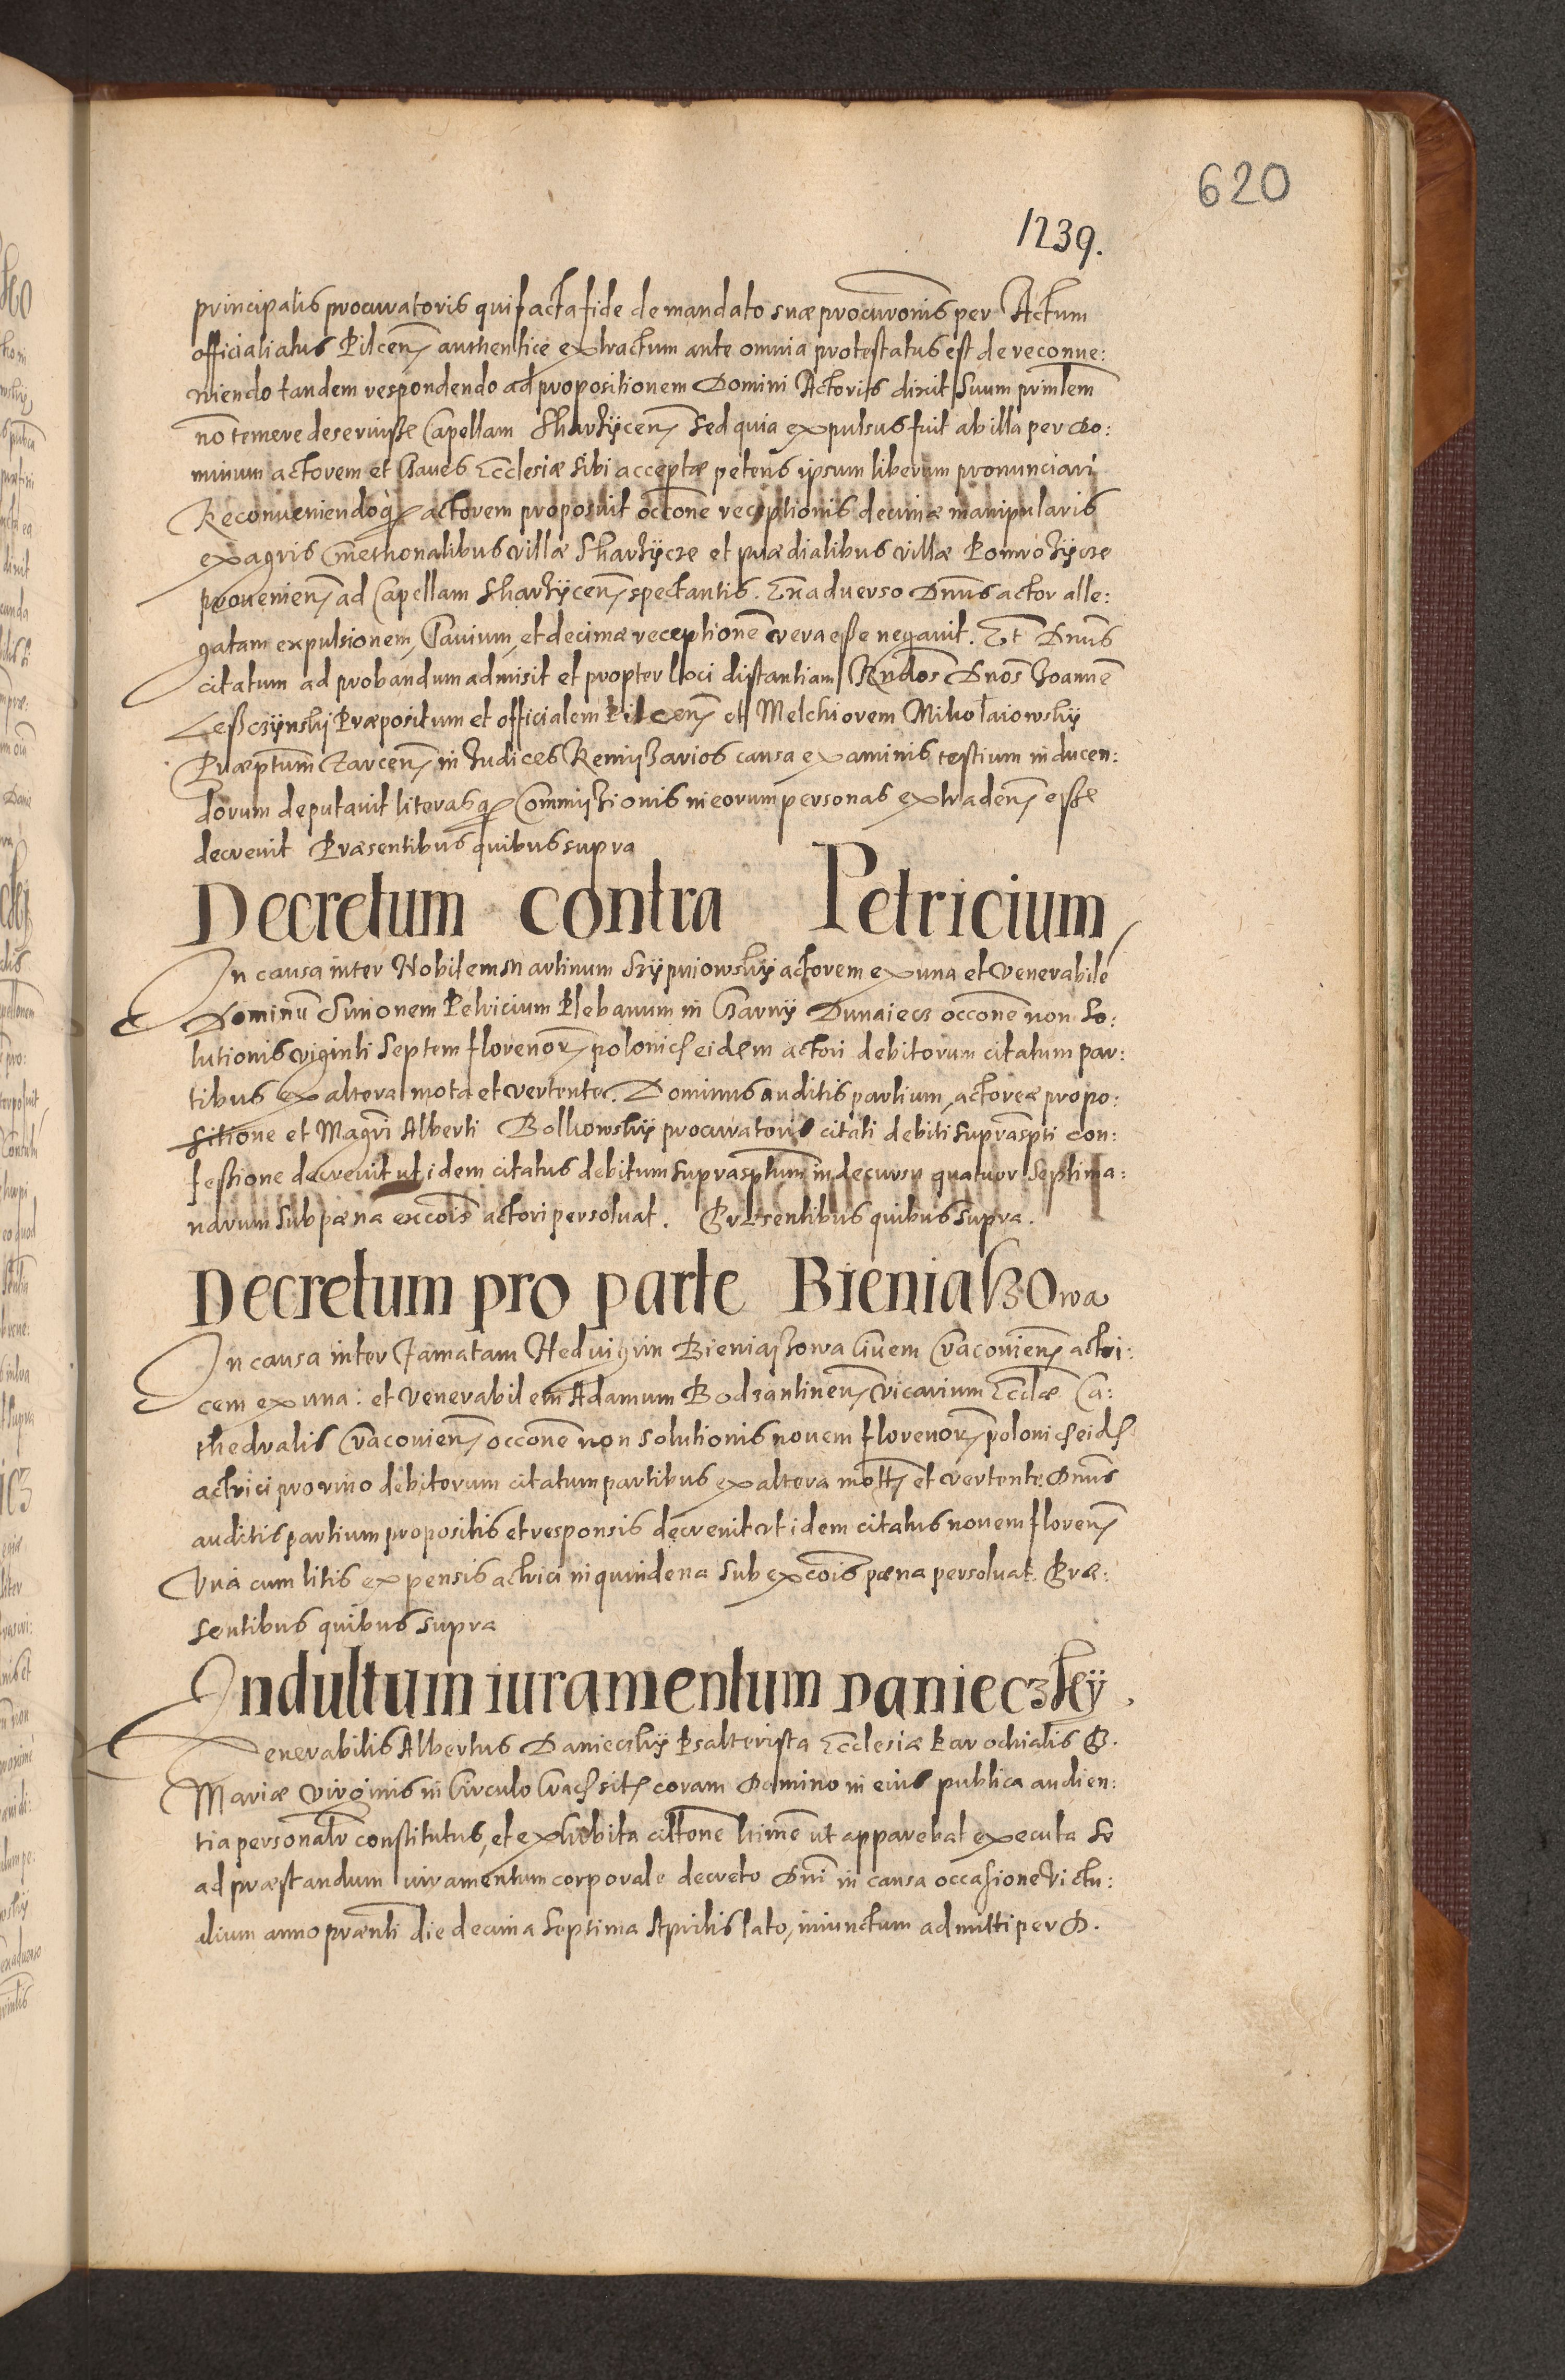 620
1239.
principalis procuratoris qui facta fide de mandato suæ procuronis per Actum
officialiatus Pilcen authentice extractum ante omnia protestatus est de reconue:
niendo tandem respondendo ad propositionem Domini Actoris dixit suum prinlem
no temere deseruisse Capellam Skarżycen sed quia expulsus fuit ab illa per Do:
minum actorem et claues Ecclesiæ sibi acceptæ petens ipsum liberum pronunciari
Reconueniendoq actorem proposuit occone receptionis decimæ manipularis
ex agris Cmethonalibus villæ Skarżycze et prædialibus villæ Pomrożycze
prouenien ad Capellam Skarżycen spectantis. Exaduerso Dnus actor alle:
gatam expulsionem, Clavium, et decimæ receptione vera esse negauit. Et Dnus
citatum ad probandum admisit et propter loci distantiam Rndos Dnos Joanne
Leßczynsky Præpositum et officialem Pilcen et Melchiorem Mikołaiowsky
Præptum Zarcen in Judices Remissarios causa examinis testium inducen:
dorum deputauit literasq Commissionis in eorum personas extraden esse
decreuit Præsentibus quibus supra
Decretum contra Petricium
In causa inter Nobilem Martinum Skypniowsky actorem ex una et Venerabile
Dominu Simonem Petricium Plebanum in Czarny Dunaiecz occone non so:
lutionis viginti septem florenor polonic eidem actori debitorum citatum par:
tibus ex altera mota et vertente. Dominus auditis partium, actoreæ propo:
sitione et Magri Alberti Bolkowsky procuratoris citati debiti suprascpti con:
fessione decreuit ut idem citatus debitum suprascptum in decursu quatuor septima:
narum sub pæna excois actori persoluat. Præsentibus quibus supra.
Decretum pro parte Bieniaszowa
In causa inter famatam Heduigim Bieniaszowa Ciuem Cracouien actri:
cem ex una: et Venerabilem Adamum Bodzantinen Vicarium Eccliæ Ca:
thedralis Cracouien occone non solutionis nouem florenor polonic eid
actrici pro vino debitorum citatum partibus ex altera mott et vertente. Dnus
auditis partium propositis et responsis decreuit ut idem citatus nouem floren
Vna cum litis expensis actrici in quindena sub excois pæna persoluat. Præ:
sentibus quibus supra
Indultum iuramentum Danieczky.
Venerabilis Albertus Danieczky Psalterista Ecclesiæ Parochialis B.
Mariæ Virginis in Circulo Crac sit coram Domino in eius publica audien:
tia personalr constitutus, et exhibita citatone ltime ut apparebat executa se
ad præstandum iuramentum corporale decreto Dni in causa occasione victu:
alium anno prænti die decima septima Aprilis lato, iniunctum admitti per D.